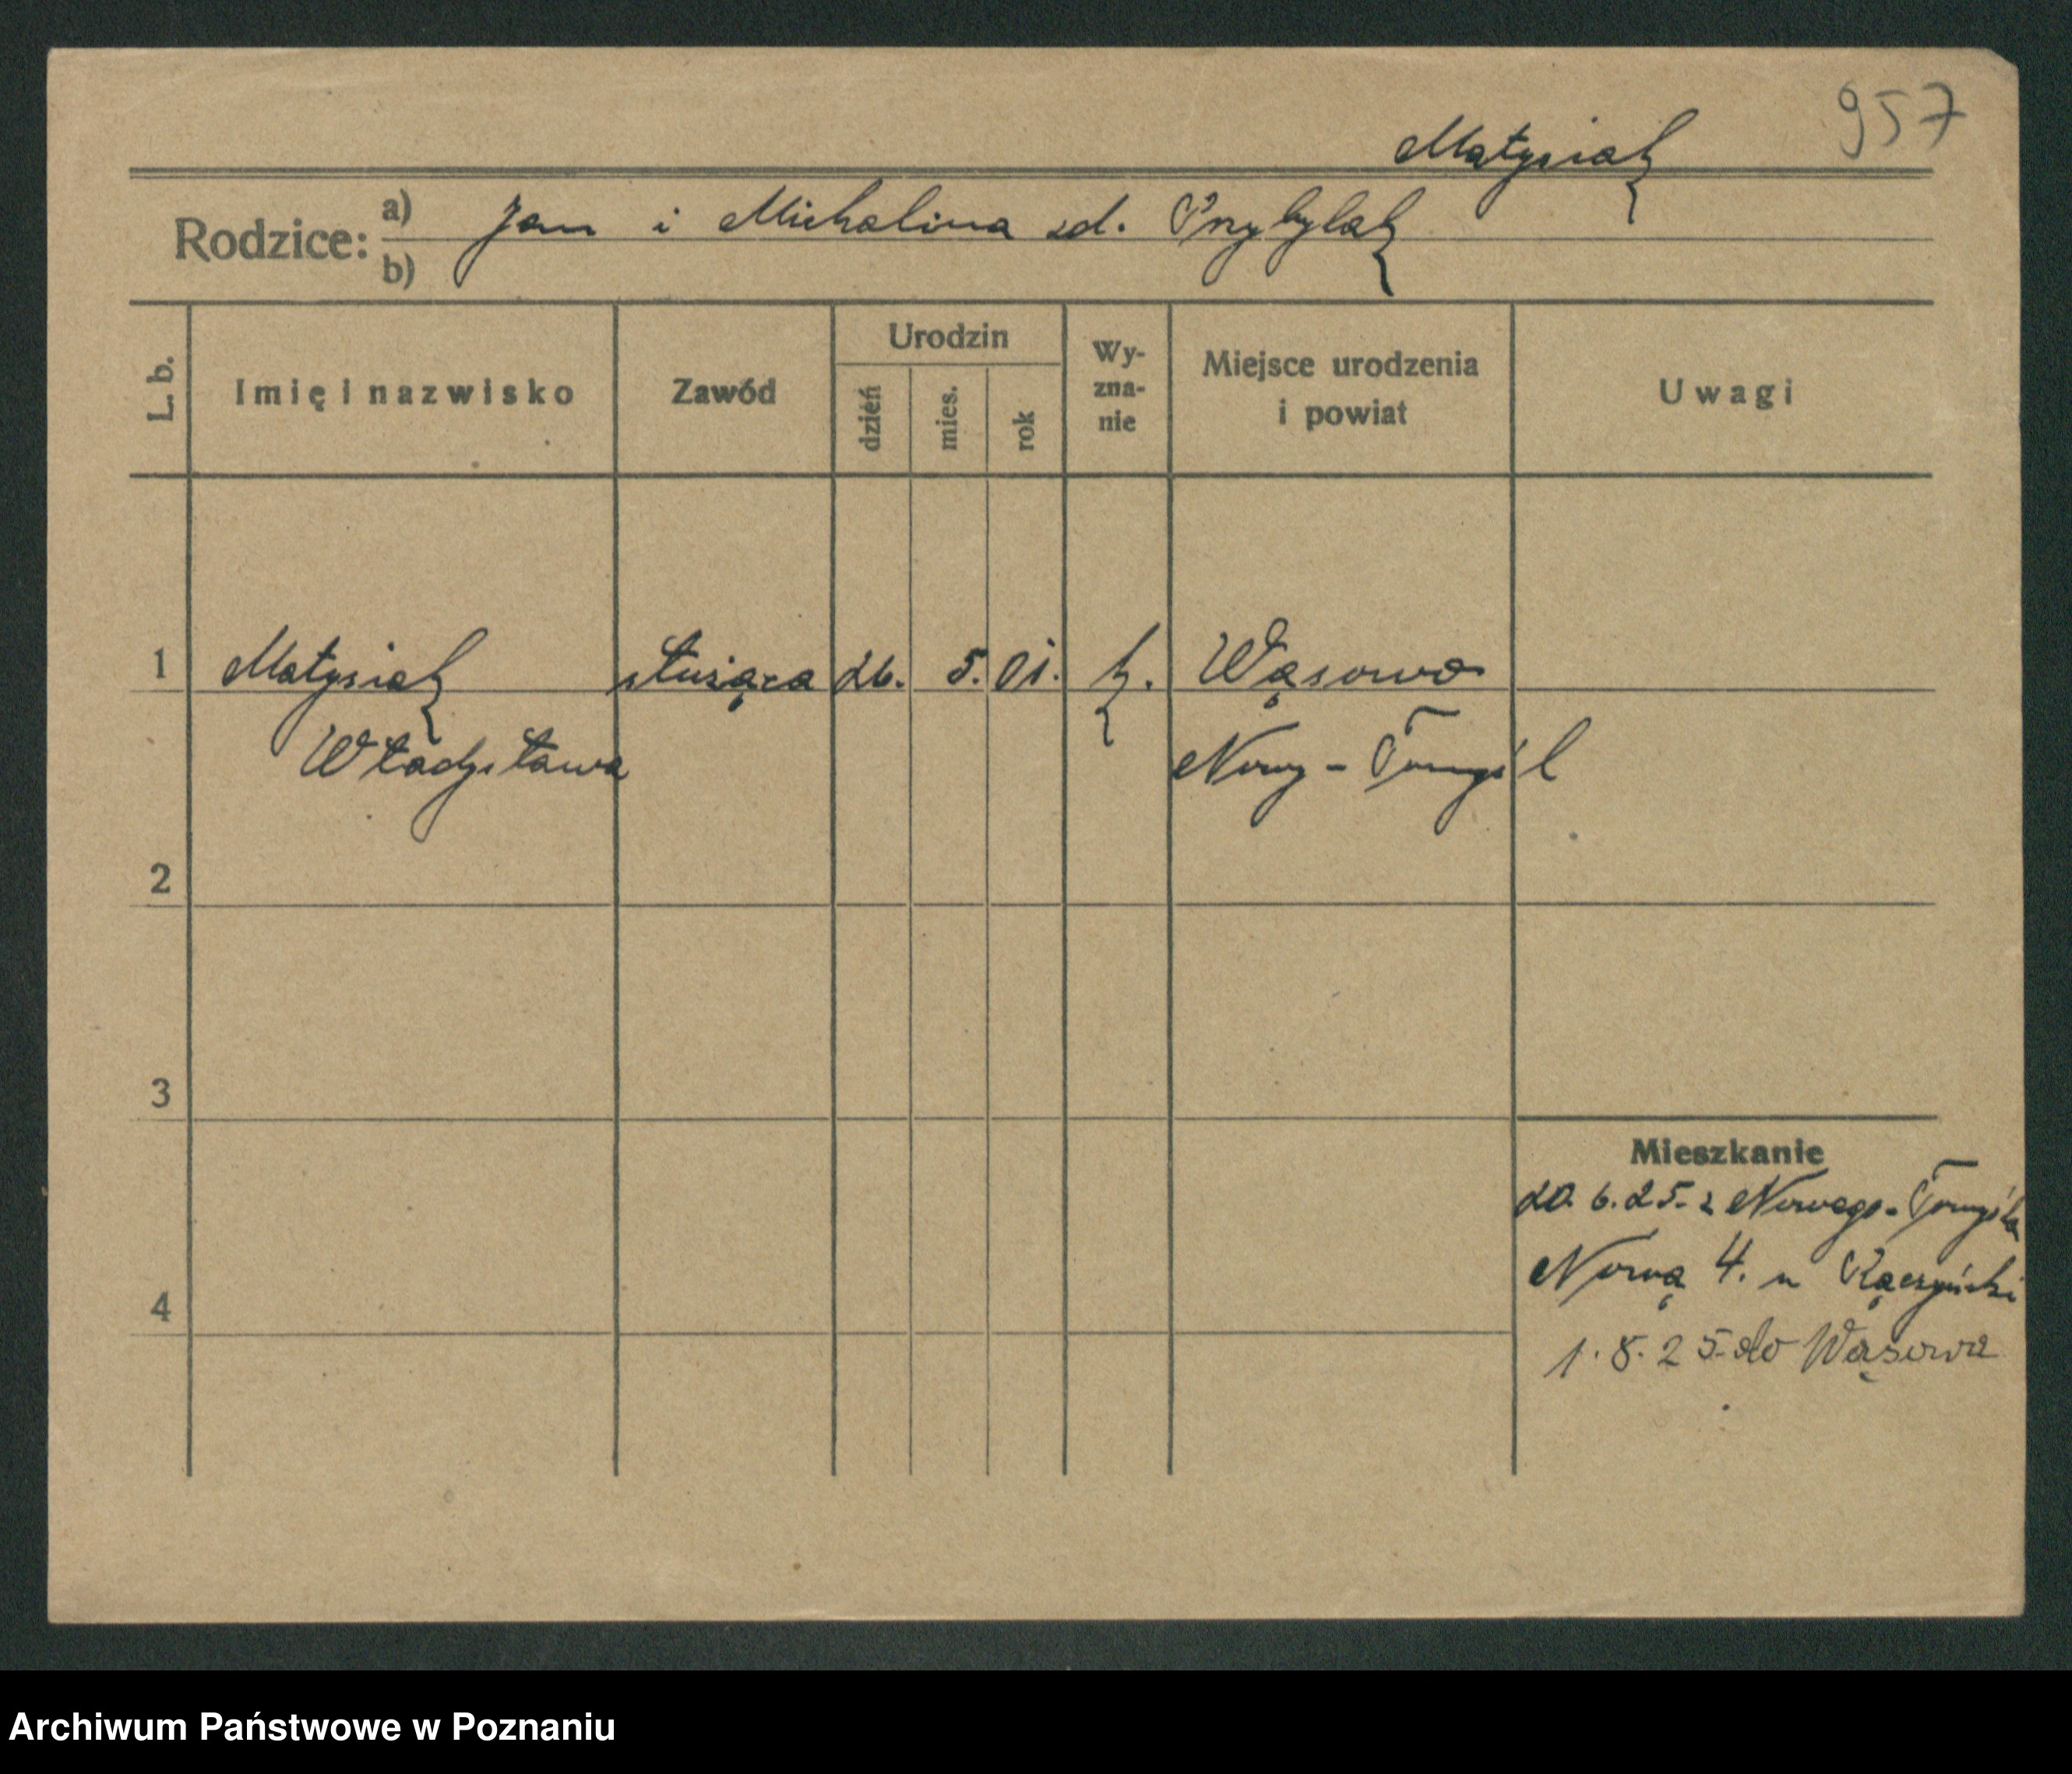 957
Matysiak
Rodzice: a) Jan i Michalina zd. Przybylak
b)
L. b.
Imię i nazwisko
Zawód
Urodzin
dzień
mies.
rok
Wy-
zna-
nie
Miejsce urodzenia
i powiat
Uwagi
1 Matysiak służąca 26. 5. 01. k. Wąsowo
Władysława Nowy-Tomyśl
2
3
Mieszkanie
20. 6. 25. z Nowego-Tomyśla
Nowa 4. u
4
1. 8. 25. do Wąsowa
Archiwum Państwowe w Poznaniu